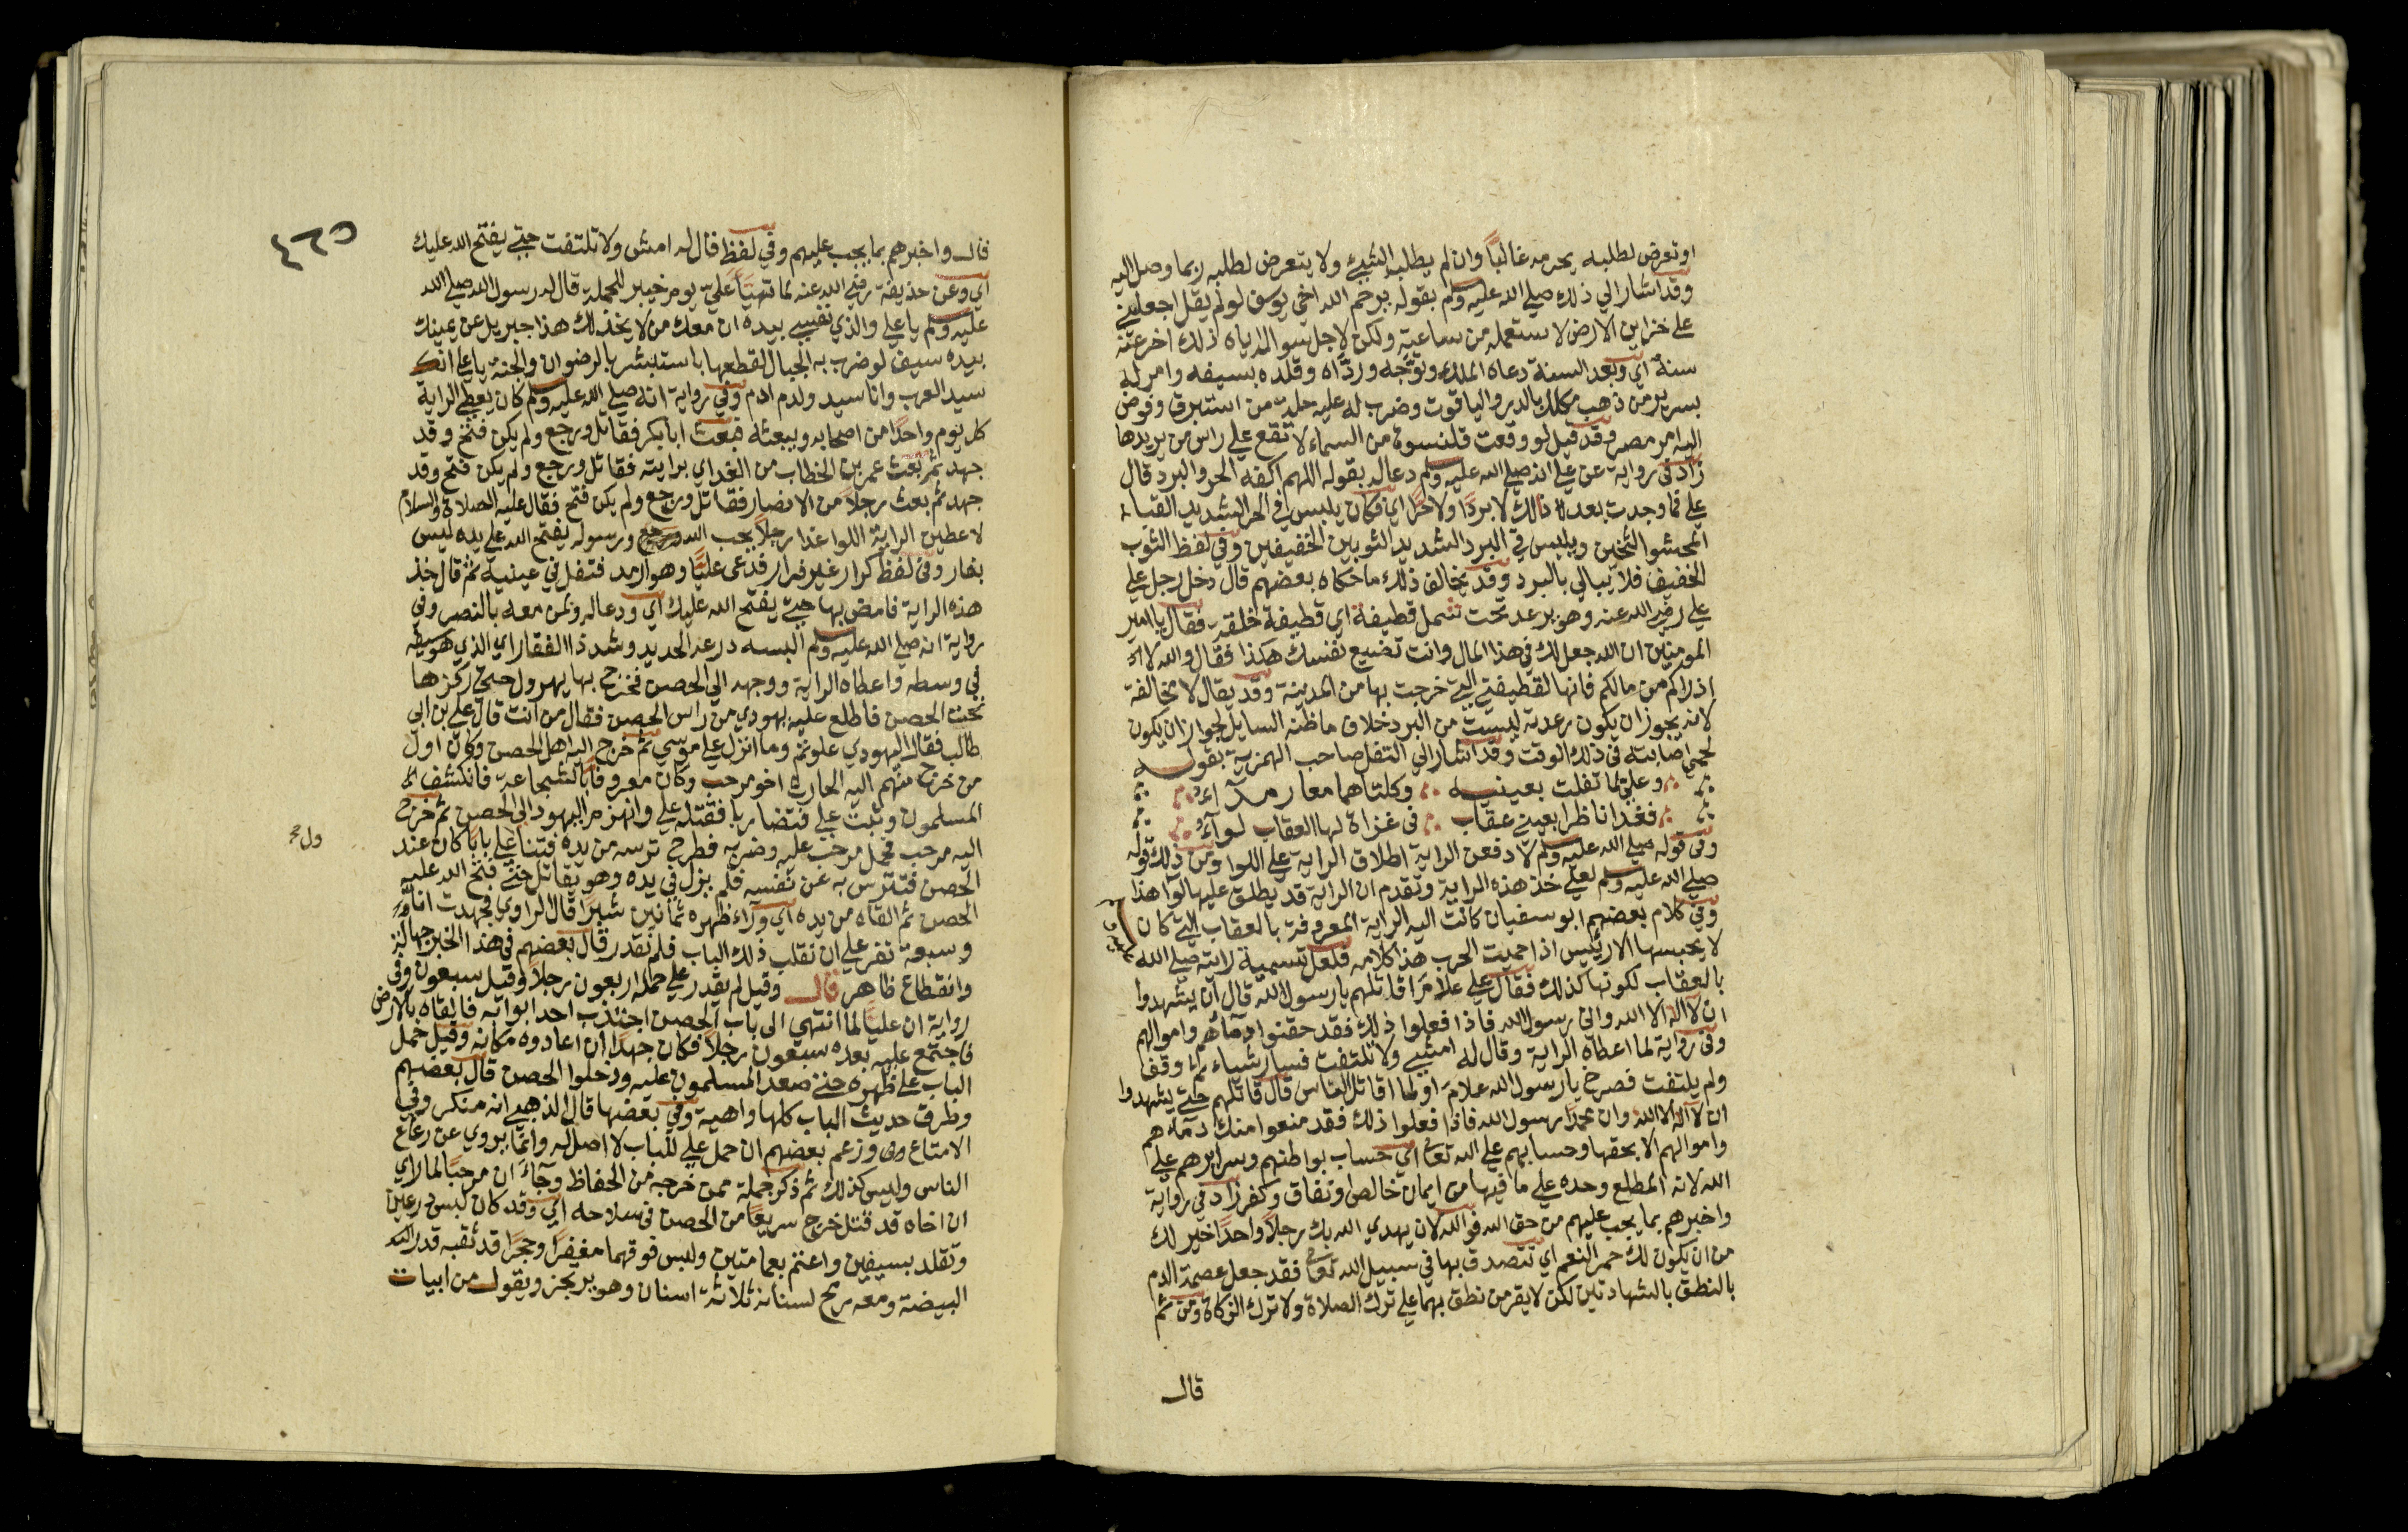 او تعرض لطلبه يحرمه غالبًا وان لم يطلب الشيئ ولا يتعرض لطلبه ربما وصل اليه
وقد اشار الي ذلك صلي الله عليه وسلم بقوله يرحم الله اخي يوسف لو لم يقل اجعلني
علي خزاين الارض لاستعمله من ساعته ولكن لاجل سواله اياه ذلك اخر عنه
سنة اي وبعد السنة دعاه الملك وتوجه وردّاه وقلده بسيفه وامر له
بسرير من ذهب مكلل بالدر والياقوت وضرب له عليه حلة من استبرق وفوض
اليه امر مصر وقد قيل لو وقعت قلنسوة من السماء لا تقع علي راس من يريدها
زاد في رواية عن علي انه صلي الله عليه وسلم دعاله بقوله اللهم اكفه الحر والبرد قال
علي فما وجدت بعد ذلك لا بردًا ولا حرًا اي فكان يلبس في الحر الشديد القباء
المحشو الثخين ويلبس في البرد الشديد الثوبين الخفيفين وفي لفظ الثوب
الخفيف فلا يبالي بالبرد وقد يخالف ذلك ما حكاه بعضهم قال دخل رجل علي
علي رضي الله عنه وهو يرعد تحت شمل قطيفة اي قطيفة خلقة فقال يا امير
المومنين ان الله جعل لك في هذا المال وانت تضيع نفسك هكذا فقال والله لا
ارزاكم من مالكم فانها لقطيفتي التي خرجت بها من المدينة وقد يقال لا مخالفة
لانه يجوز ان يكون رعدته ليست من البرد خلاف ما ظنه السايل لجواز ان يكون
لحمي اصابته في ذلك الوقت وقد اشار الي التفل صاحب الهمزية بقوله
وعلي لما تفلت بعينيه وكلتاهما معا رمدآء
فغدا ناظرا بعيني عقاب في غزاة لها العقاب لوآء
وفي قوله صلي الله عليه وسلم لادفعن الراية اطلاق الراية علي اللوا ومن ذلك قوله
صلي الله عليه وسلم لعلي خذ هذه الراية وتقدم ان الراية قد يطلق عليها لوآ هذا
وفي كلام بعضهم ابو سفيان كانت اليه الراية المعروفة بالعقاب التي كان
لا يحبسها الا رئيس اذا حميت الحرب هذا كلامه فلعل تسمية رايته صلي الله
بالعقاب لكونها كذلك فقال علي علام اقاتلهم يا رسول الله قال ان يشهدوا
ان لا اله الا الله واني رسول الله فاذا فعلوا ذلك فقد حقنوا دمآئهم واموالهم
وفي رواية لما اعطاه الراية وقال له امشي ولا تلتفت فسار شياء ثم وقف
ولم يلتفت فصرخ يا رسول الله علام او لما اقاتل الناس قال قاتلهم حتي يشهدوا
ان لا اله الا الله وان محمدًا رسول الله فاذا فعلوا ذلك فقد منعوا منك دمآهم
واموالهم الا بحقها وحسابهم علي الله تعالي اي حساب بواطنهم وسرايرهم علي
الله لانه المطلع وحده علي ما فيها من ايمان خالص او نفاق وكفر زاد في رواية
واخبرهم بما يجب عليهم من حق الله فوالله لان يهدي الله بك رجلا واحدا خير لك
من ان يكون لك حمر النعم اي تتصدق بها في سبيل الله تعالي فقد جعل عصمة الدم
بالنطق بالشهادتين لكن لا يقر من نطق بهما علي ترك الصلاة ولا ترك الزكاة ومن ثم
قال
٤٢٥
قال واخبرهم بما يجب عليهم وفي لفظ قال له امش ولا تلتفت حتي يفتح الله عليك
اي وعن حذيفة رضي الله عنه لما تهيأ علي يوم خيبر للحملة قال له رسول الله صلي الله
عليه وسلم يا علي والذي نفسي بيده ان معك من لا يخذلك هذا جبريل عن يمينك
بيده سيف لو ضرب به الجبال لقطعها باستبشر بالرضوان والجنة يا علي انك
سيد العرب وانا سيد ولد ادم وفي رواية انه صلي الله عليه وسلم كان يعطي الراية
كل يوم واحدًا من اصحابه ويبعثه فبعث ابا بكر فقاتل ورجع ولم يكن فتح وقد
جهد ثم بعث عمر بن الخطاب من الغد اي برايته فقاتل ورجع ولم يكن فتح وقد
جهد ثم بعث رجلا من الانصار فقاتل ورجع ولم يكن فتح فقال عليه الصلاة والسلام
لاعطين الراية اللوا غدا رجلا يحب الله ورسوله يفتح الله علي يده ليس
بفار وفي لفظ كرار غير فرار فدعي عليًّا وهو ارمد فتفل في عينيه ثم قال خذ
هذه الراية فامض بها حتي يفتح الله عليك اي ودعاله ولمن معه بالنصر وفي
رواية انه صلي الله عليه وسلم البسه درعه الحديد وشد ذا الفقار اي الذي هو سيفه
في وسطه واعطاه الراية ووجهه الي الحصن فخرج بها يهرول حتي ركزها
تحت الحصن فاطلع عليه يهودي من راس الحصن فقال من انت قال علي بن ابي
طالب فقال اليهودي علوتم وما انزل علي موسي ثم خرج اليه اهل الحصن وكان اول
من خرج منهم اليه الحارث اخو مرحب وكان معروفًا بالشجاعة فانكشف
المسلمون وثبت علي فتضاربا فقتله علي وانهزم اليهود الي الحصن ثم خرج
اليه مرحب فحمل مرحب عليه وضربه فطرح ترسه من يده فتناول علي بابا كان عند
ول صح
الحصن فتترس به عن نفسه فلم يزل في يده وهو يقاتل حتي فتح الله عليه
الحصن ثم القاه من يده اي ورآء ظهره ثمانين شبرًا قال الراوي فجهدت انا
وسبعة نفر علي ان نقلب ذلك الباب فلم نقدر قال بعضهم في هذا الخبر جهالة
وانقطاع ظاهر قال وقيل لم يقدر علي حمله اربعون رجلا وقيل سبعون وفي
رواية ان عليًا لما انتهي الي باب الحصن اجتذب احد ابوابه فالقاه بالارض
فاجتمع عليه بعده سبعون رجلا فكان جهدا ان اعادوه مكانه وقيل حمل
الباب علي ظهره حتي صعد المسلمون عليه ودخلوا الحصن قال بعضهم
وطرق حديث الباب كلها واهية وفي بعضها قال الذهبي انه منكر وفي
الامتاع وزعم بعضهم ان حمل علي للباب لا اصل له وانما يروي عن رعاع
الناس وليس كذلك ثم ذكر جملة ممن خرجه من الحفاظ وجآء ان مرحبًا لما راي
ان اخاه قد قتل خرج سريعًا من الحصن في سلاحه اي وقد كان لبس درعين
وتقلد بسيفين واعتم بعمامتين ولبس فوقهما مغفرًا وحجرًا قد ثقبه قدر
البيضة ومعه رمح لسنانه ثلاثة اسنان وهو يرتجز ويقول من ابيات